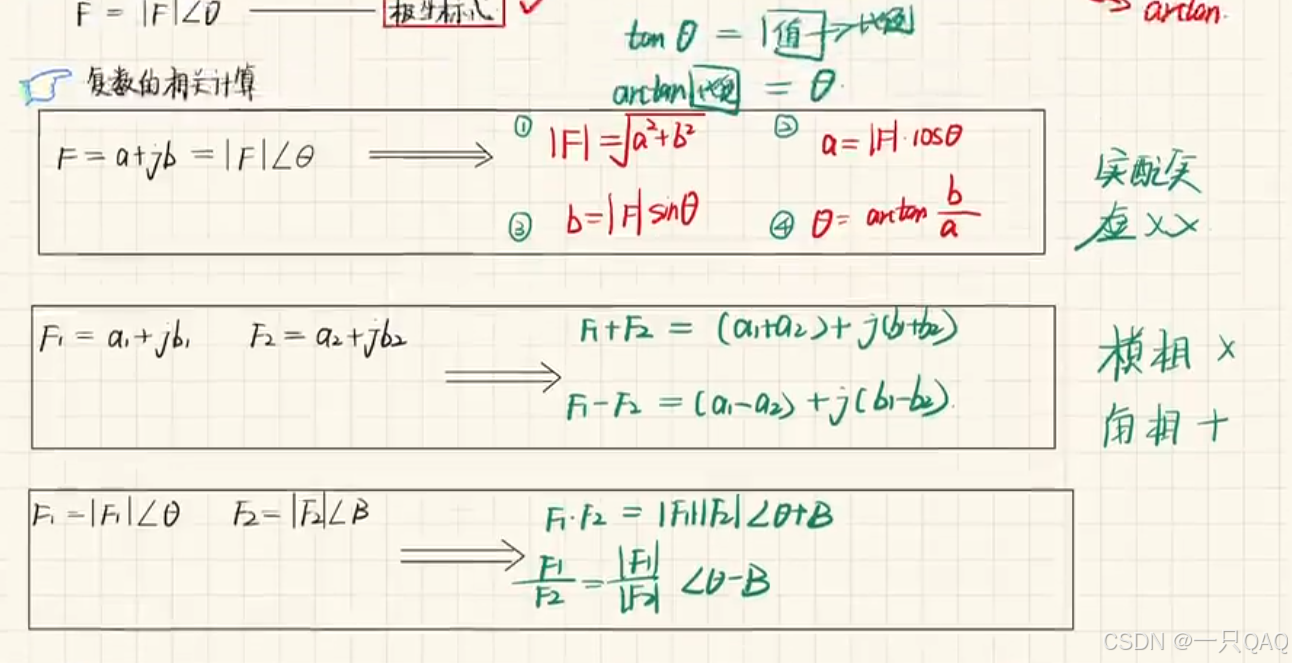 F = |F|∠θ 极坐标式
tan θ = |值|→
arctan
arctan = θ.
复数的相关计算
F = a+jb = |F|∠θ
① |F| = √a²+b² ② a = |F|·cosθ
③ b = |F| sinθ ④ θ = arctan b/a
实配实
虚××
F₁ = a₁+jb₁ F₂ = a₂+jb₂
F₁+F₂ = (a₁+a₂)+j(b₁+b₂)
F₁-F₂ = (a₁-a₂)+j(b₁-b₂).
模相×
角相+
F₁ = |F₁|∠θ F₂ = |F₂|∠B
F₁·F₂ = |F₁||F₂|∠θ+B
F₁/F₂ = |F₁|/|F₂| ∠θ-B
CSDN @一只QAQ